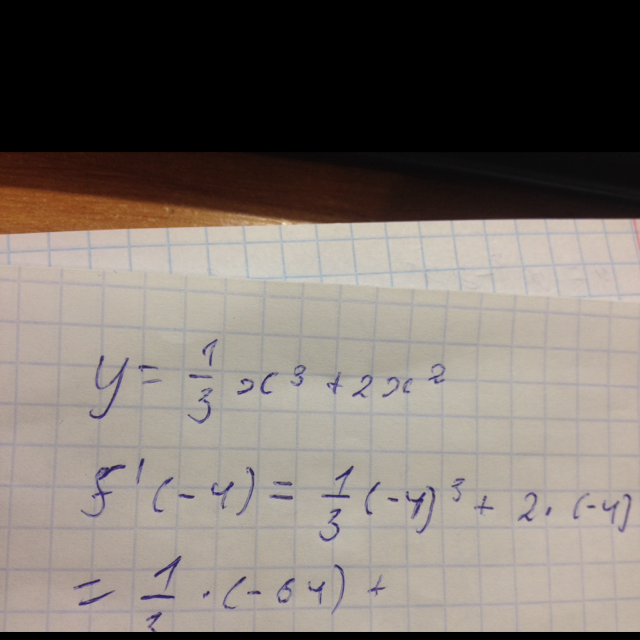 y = 1/3 x³ + 2x²
f'(-4) = 1/3 (-4)³ + 2·(-4)
= 1/3 ·(-64) +